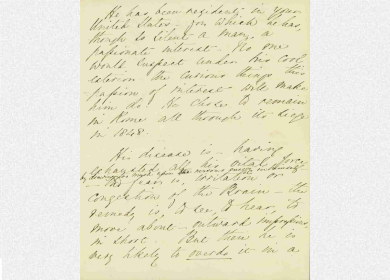 He has been resident in your
United States – for which he has,
though so silent a man, a
passionate interest – No one
would suspect under his cool
exterior the curious things this
passion of interest will make
him do. He chose to remain
in Rome all through its siege
in 1848.
His disease is – having
exhausted all his vital force
by
– the fear is, irritation or
congestion of the Brain – the
remedy is, to see, to hear, to
move about – outward impressions,
in short. But then he is
very likely to overdo it in a